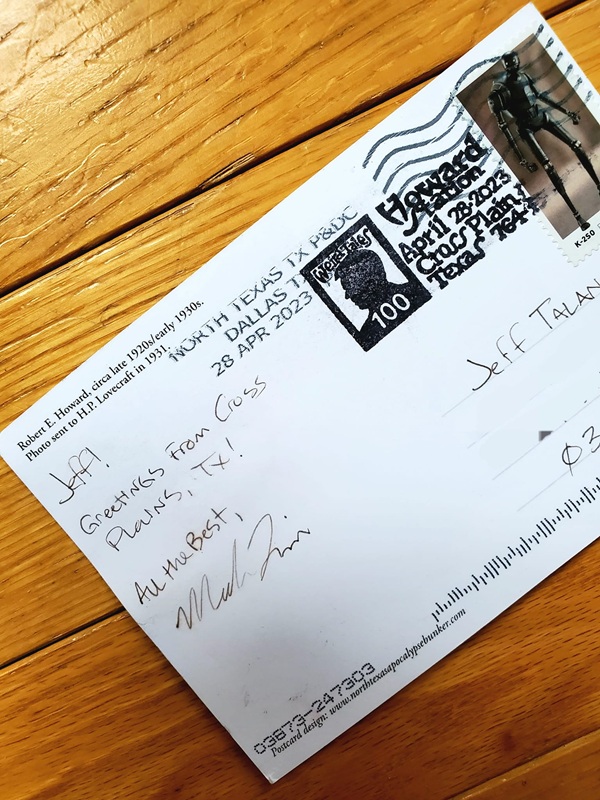 Howard
Station
April 28 2023
Cross Plains
Texas 764
Weird Tales
100
K-2SO
NORTH TEXAS TX P&DC
DALLAS TX
28 APR 2023
Robert E. Howard, circa late 1920s/early 1930s.
Photo sent to H.P. Lovecraft in 1931.
Jeff!
Greetings From Cross
Plains, Tx!
All the Best,
Jeff TALAN
03
03873-247303
Postcard design: www.northtexasapocalypsebunker.com